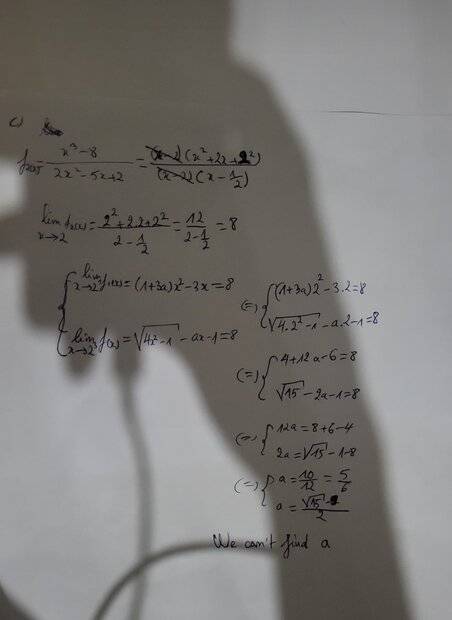 c)
f(x) = x³-8 / 2x²-5x+2 = (x-2)(x²+2x+2²) / (x-2)(x-1/2)
lim x→2 f(x) = 2²+2.2+2² / 2-1/2 = 12 / 2-1/2 = 8
{ lim x→2 f(x) = (1+3a)x²-3x = 8
lim x→2 f(x) = √4x²-1 - ax-1 = 8
(=) { (1+3a)2²-3.2 = 8
√4.2²-1 - a.2-1 = 8
(=) { 4+12a-6 = 8
√15 - 2a-1 = 8
(=) { 12a = 8+6-4
2a = √15 -1-8
(=) { a = 10/12 = 5/6
a = √15-9 / 2
We can't find a